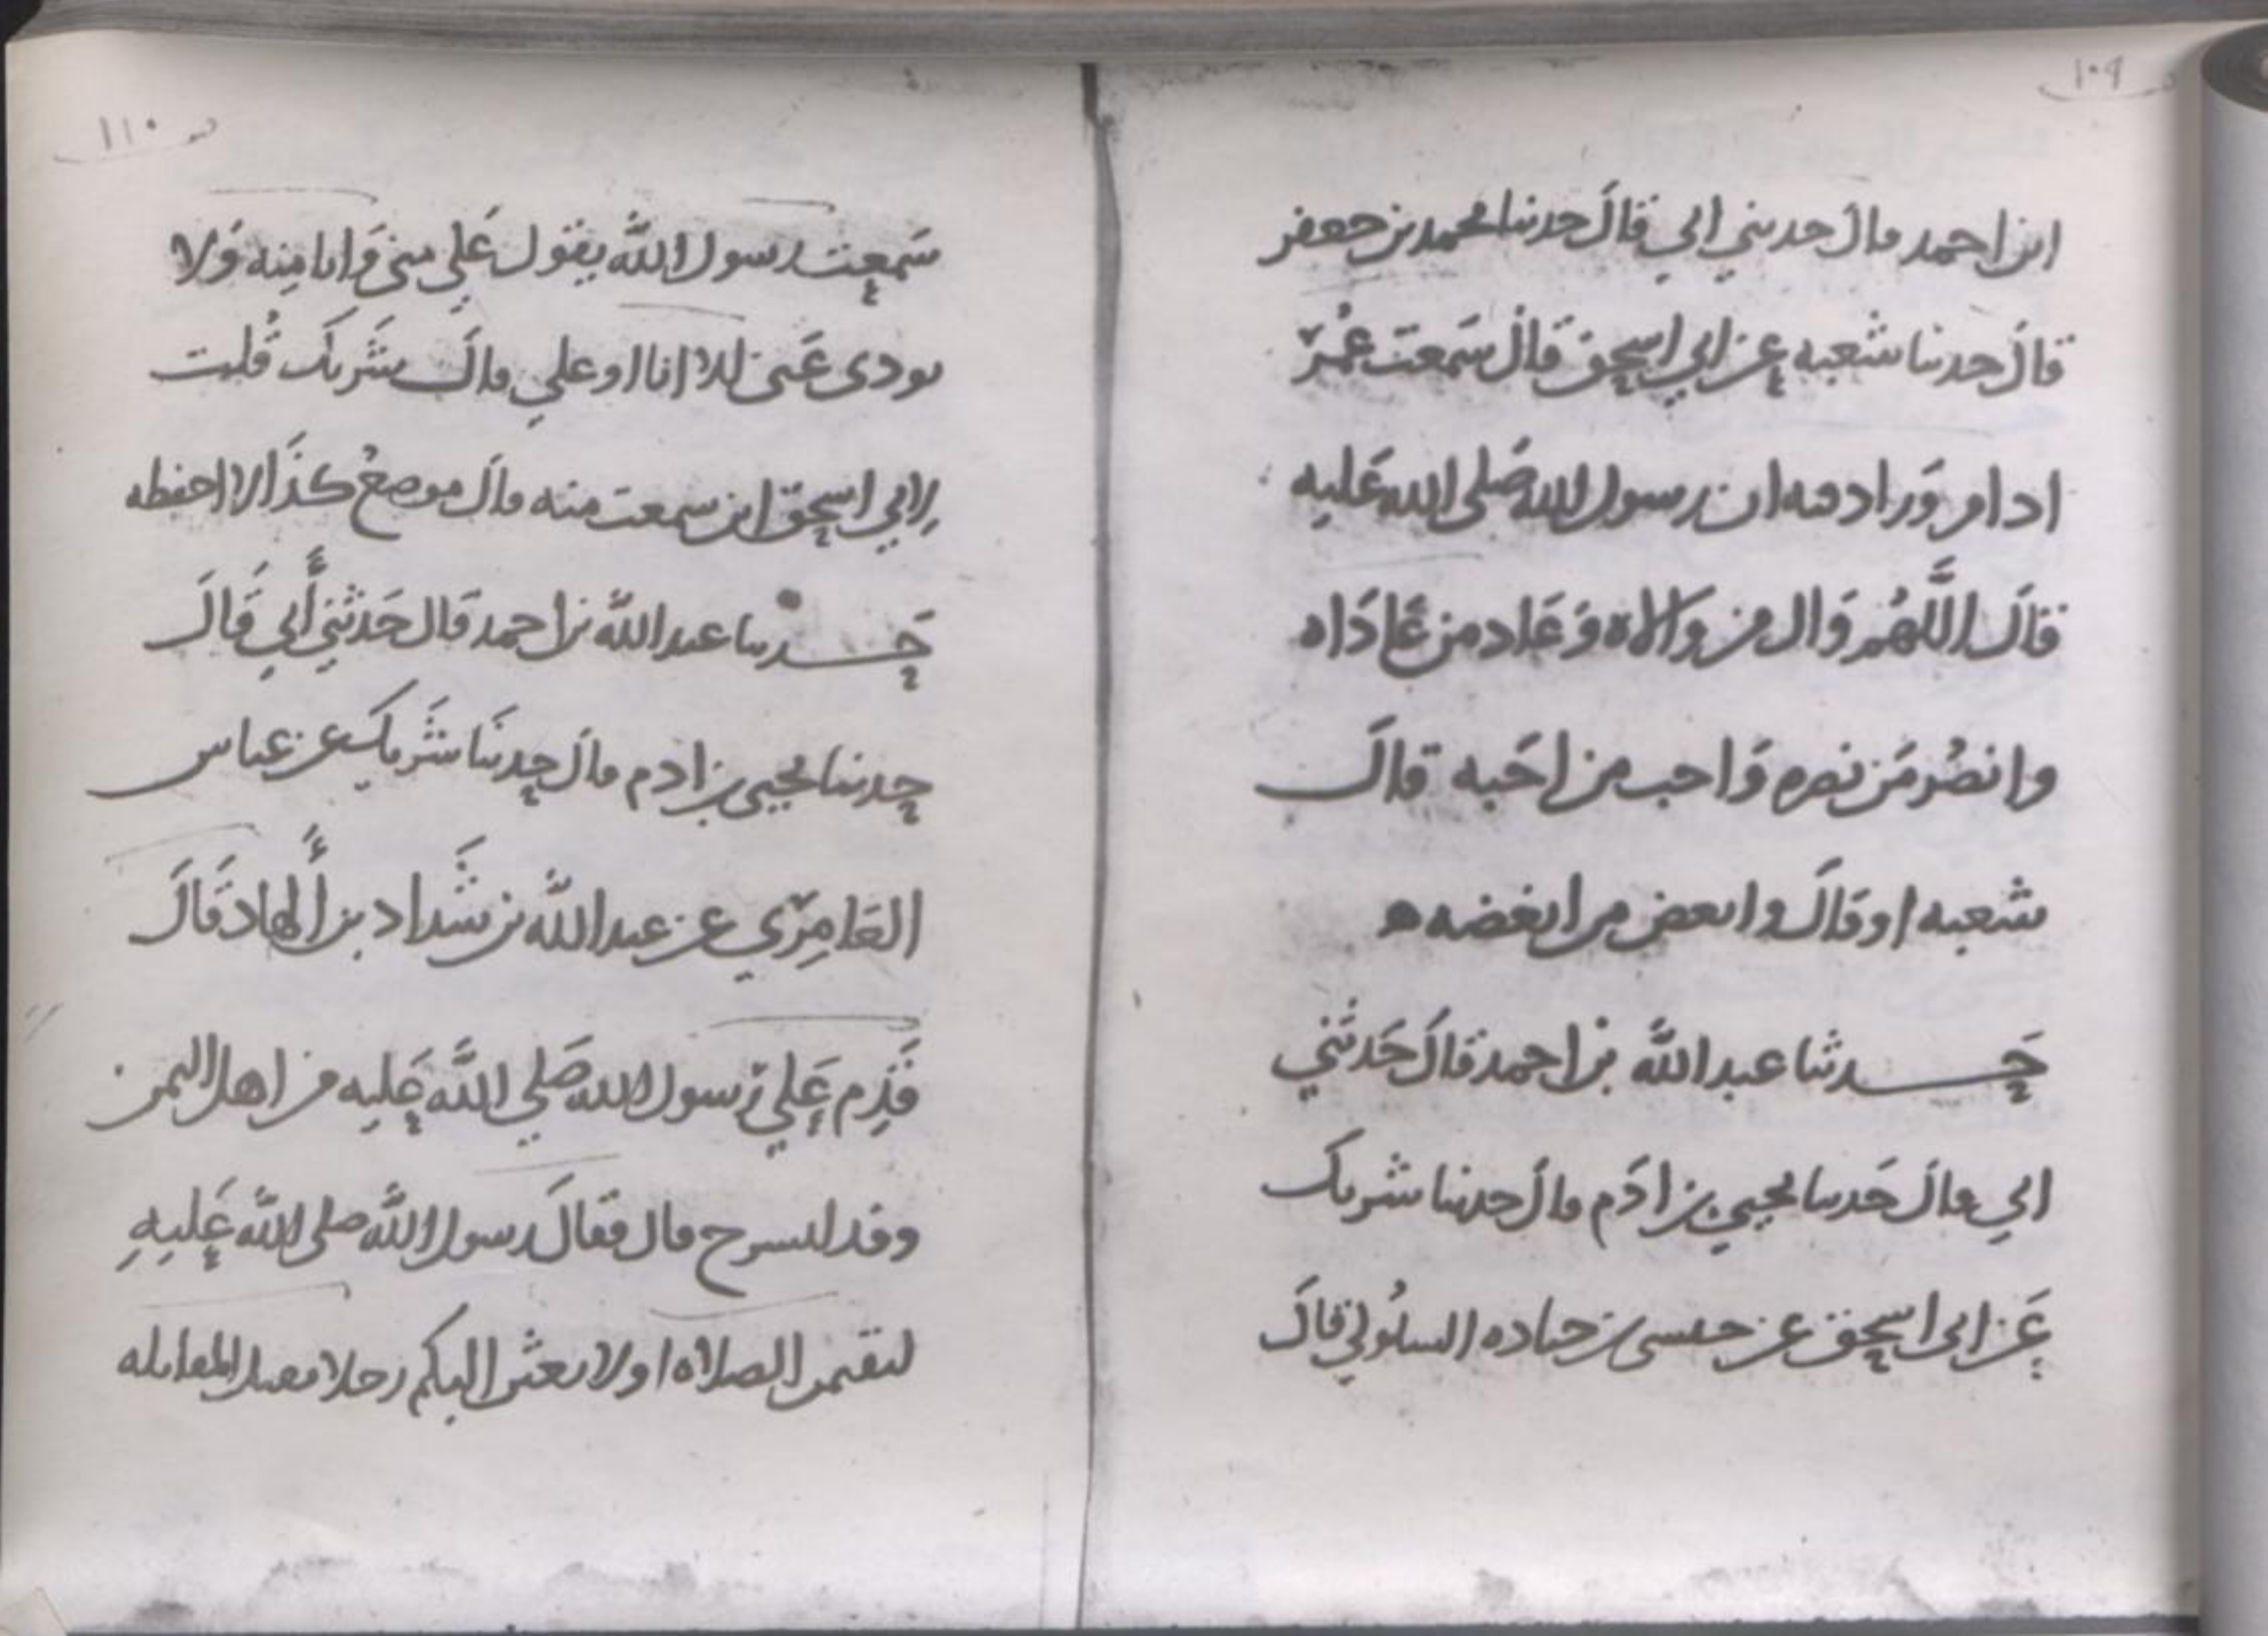 ١٠٩
ابن احمد قال حدثني ابي قال حدثنا محمد بن جعفر
قال حدثنا شعبه عن ابي اسحق قال سَمعت عُمر
اذا مر وَزاد فيه ان رسول الله صَلى الله عَليه
قالَ اللَّهُم وَال من والاه وَعَاد من عَادَاه
وانصُر مَن نصره وَاحب من احَبه قال
شعبه او قالَ وابغض من ابغضه ه
حَدثنا عبد اللَّه بن احمد قالَ حَدثَني
ابي قال حَدثنا يحيى بن ادَم قالَ حدثنا شريك
عَن ابي اسحق عن حبشي بن جناده السلُولي قالَ
١١٠
سَمعت رسول اللَّه يقول عَلي مني وَانا مِنه وَلا
يودي عَني الا انا او علي قالَ شَريكَ قُلت
لِابي اسحق اين سمعت منه قالَ موضعُ كذَا لا احفظه
حَدثنا عبد اللَّه بن احمد قال حَدثني أَبي قَالَ
حدثنا يحيى بن ادم قالَ حدثنَا شَريك عن عياس
العَامِري عن عبد اللَّه بن شَداد بن أَلهاد قَالَ
قَدِم عَلي رسول الله صَلي اللَّه عَليه من اهل اليمن
وفد لسرح قال فقالَ رسول اللَّه صلى اللَّه عَليهِ
لتقيمن الصلاه او لابعثن اليكم رجلا يقتل المقاتله